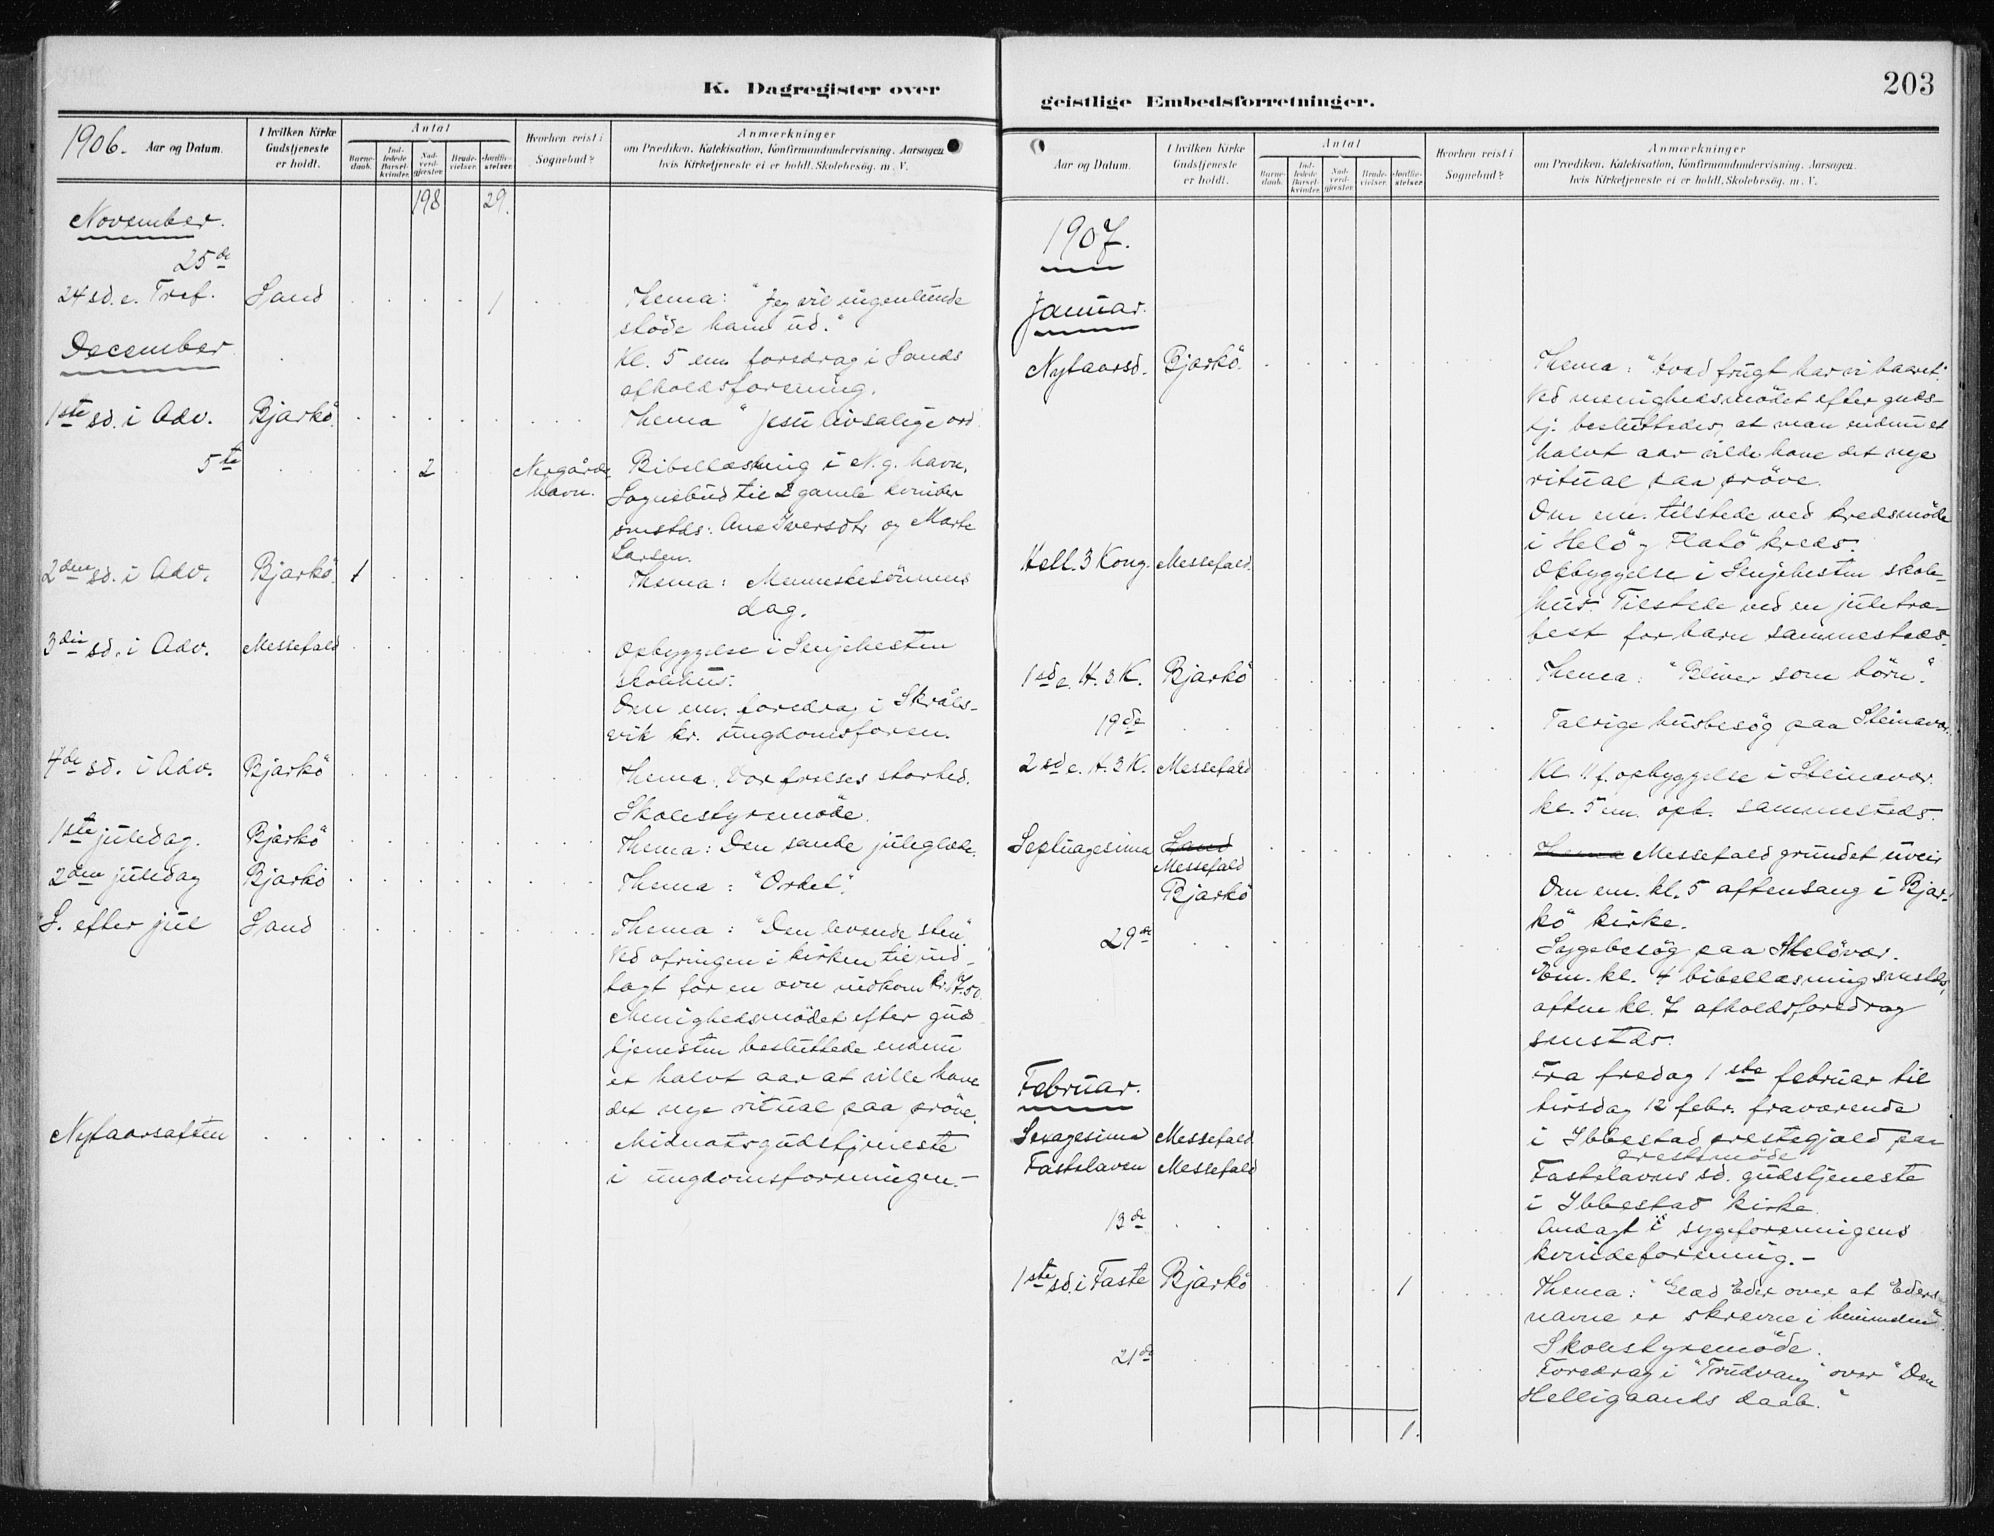 K. Dagregister over
1906. Aar og Datum.
I hvilken Kirke Gudstjeneste er holdt.
Antal
Barnedaab.
Indledede Barselkvinder.
Nadverdgjæster.
Brudevielser.
Jordfæstelser.
Hvorhen reist i Sognebud?
Anmærkninger
om Prædiken, Katekisation, Konfirmandundervisning, Aarsagen
hvis Kirketjeneste ei er holdt, Skolebesøg, m. V.
198 29.
November.
25de
24 sd. e. Tref. Sand 1 Thema: "Jeg vil ingenlunde
støde ham ud."
December
Kl. 5 em. foredrag i Sands
afholdsforening.
1ste sd. i Adv. Bjarkö Thema "Jesu livsalige ord"
5te 2 Nergårds- Bibellæsning i N.g. havn,
havn. Sognebud til 2 gamle kvinder
smstds: Ane Iversdtr og Marte
Larsen.
2den sd. i Adv. Bjarkö 1 Thema: Menneskesönnens
dag.
3die sd. i Adv. Messefald Opbyggelse i Senjehesten
skolehus.
Om em. foredrag i Skråls-
vik kr. ungdomsforen.
4de sd. i Adv. Bjarkö Thema: Vor frelses storhed.
Skolestyremöde.
1ste juledag. Bjarkö Thema: Den sande juleglæde.
2den juledag Bjarkö Thema: "Ordet".
S. efter jul Sand Thema: "Den levende sten"
Ved ofringen i kirken til ind-
tægt for en ovn indkom kr. 17.50.
Menighedsmödet efter guds
tjenesten besluttede endnu
et halvt aar at ville have
det nye ritual paa pröve.
Nytaarsaften Midnatsgudstjeneste
i ungdomsforeningen.-
geistlige Embedsforretninger.
203
Aar og Datum.
I hvilken Kirke Gudstjeneste er holdt.
Antal
Barnedaab.
Indledede Barselkvinder.
Nadverdgjæster.
Brudevielser.
Jordfæstelser.
Hvorhen reist i Sognebud?
Anmærkninger
om Prædiken, Katekisation, Konfirmandundervisning, Aarsagen
hvis Kirketjeneste ei er holdt, Skolebesøg, m. V.
1907.
Januar.
Nytaarsd. Bjarkö. Thema: "Hvad frugt har vi baaret".
Ved menighedsmödet efter guds-
tj. besluttedes, at man endnu et
halvt aar vilde have det nye
ritual paa pröve.
Om em. tilstede ved kredsmöde
i Helö og Flatö kreds.
Hell. 3 Kong. Messefald. Opbyggelse i Senjehesten skole-
hus. Tilstede ved en juletræ-
fest for barn sammesteds.
1 sd e. H. 3 K. Bjarkö Thema: "Bliver som börn".
19de Talrige husbesög paa Steinavær.
2 sd e. H. 3 K. Messefald Kl. 11 f. opbyggelse i Steinavær.
kl. 5 em. opb. sammesteds.
Septuagesima Sand Thema Messefald grundet uveir
Messefald
Bjarkö Om em. kl. 5 aftensang i Bjar-
kö kirke.
29de Sygebesög paa Meløvær.
Em. kl. 4 bibellæsning smstds,
aften kl. 7 afholdsforedrag
smstds.
Februar.
Fra fredag 1ste februar til
tirsdag 12 febr. fraværende
Sexagesima Messefald i Ibbestad prestegjæld paa
prestemöde
Fastelaven Messefald Fastelavns sd. gudstjeneste
i Ibbestad kirke.
13de Andagt i sygeforeningens
kvindeforening.-
1ste sd. i Faste Bjarkö 1 Thema: "Glæd Eder over at Eders
navne er skrevne i himmelen".
21de Skolestyremöde.
Foredrag i "Trudvang" over "Den
Helligaands daab."
1.